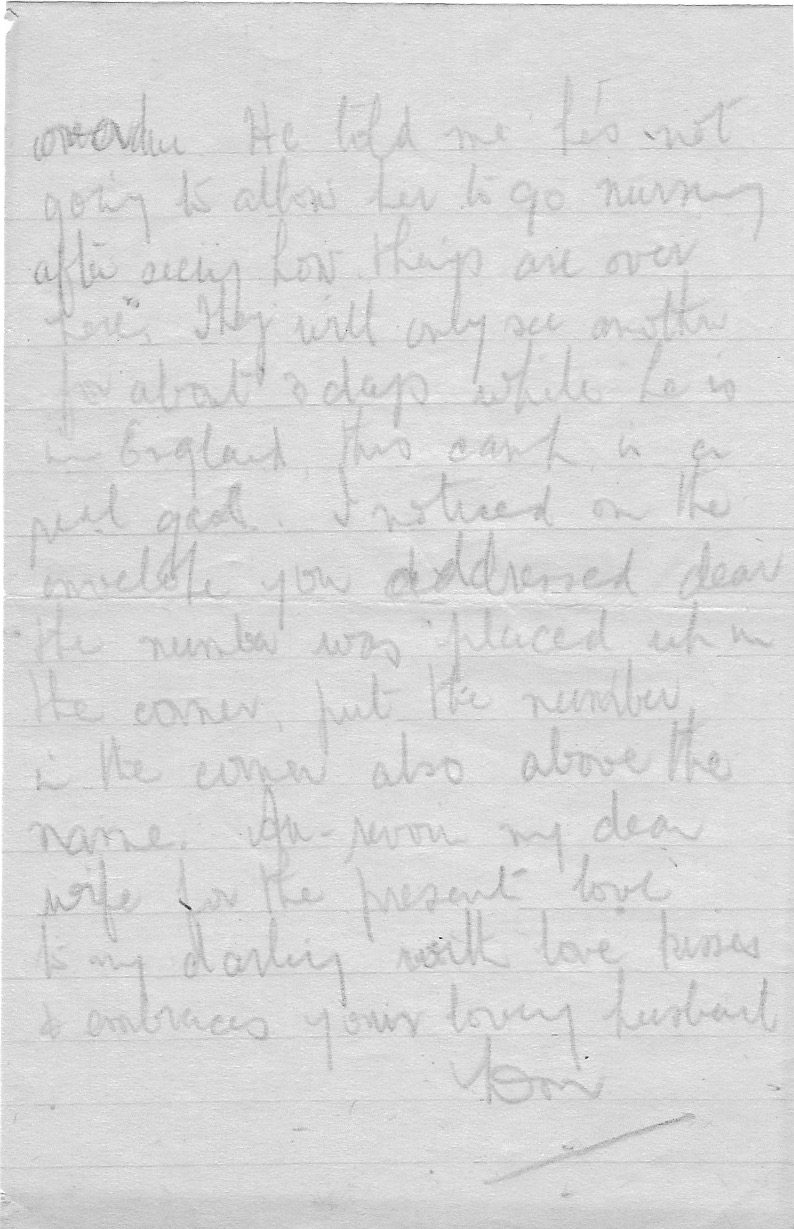 He told me he's not
going to allow her to go nursing
after seeing how things are over
here". They will only see another
for about 3 days while he is
in England, this camp is a
. I noticed on the
envelope you addressed dear
the number was placed up in
the corner, put the number
in the corner also above the
name. Au-revoir my dear
wife for the present love
to my darling with love kisses
& embraces your loving husband